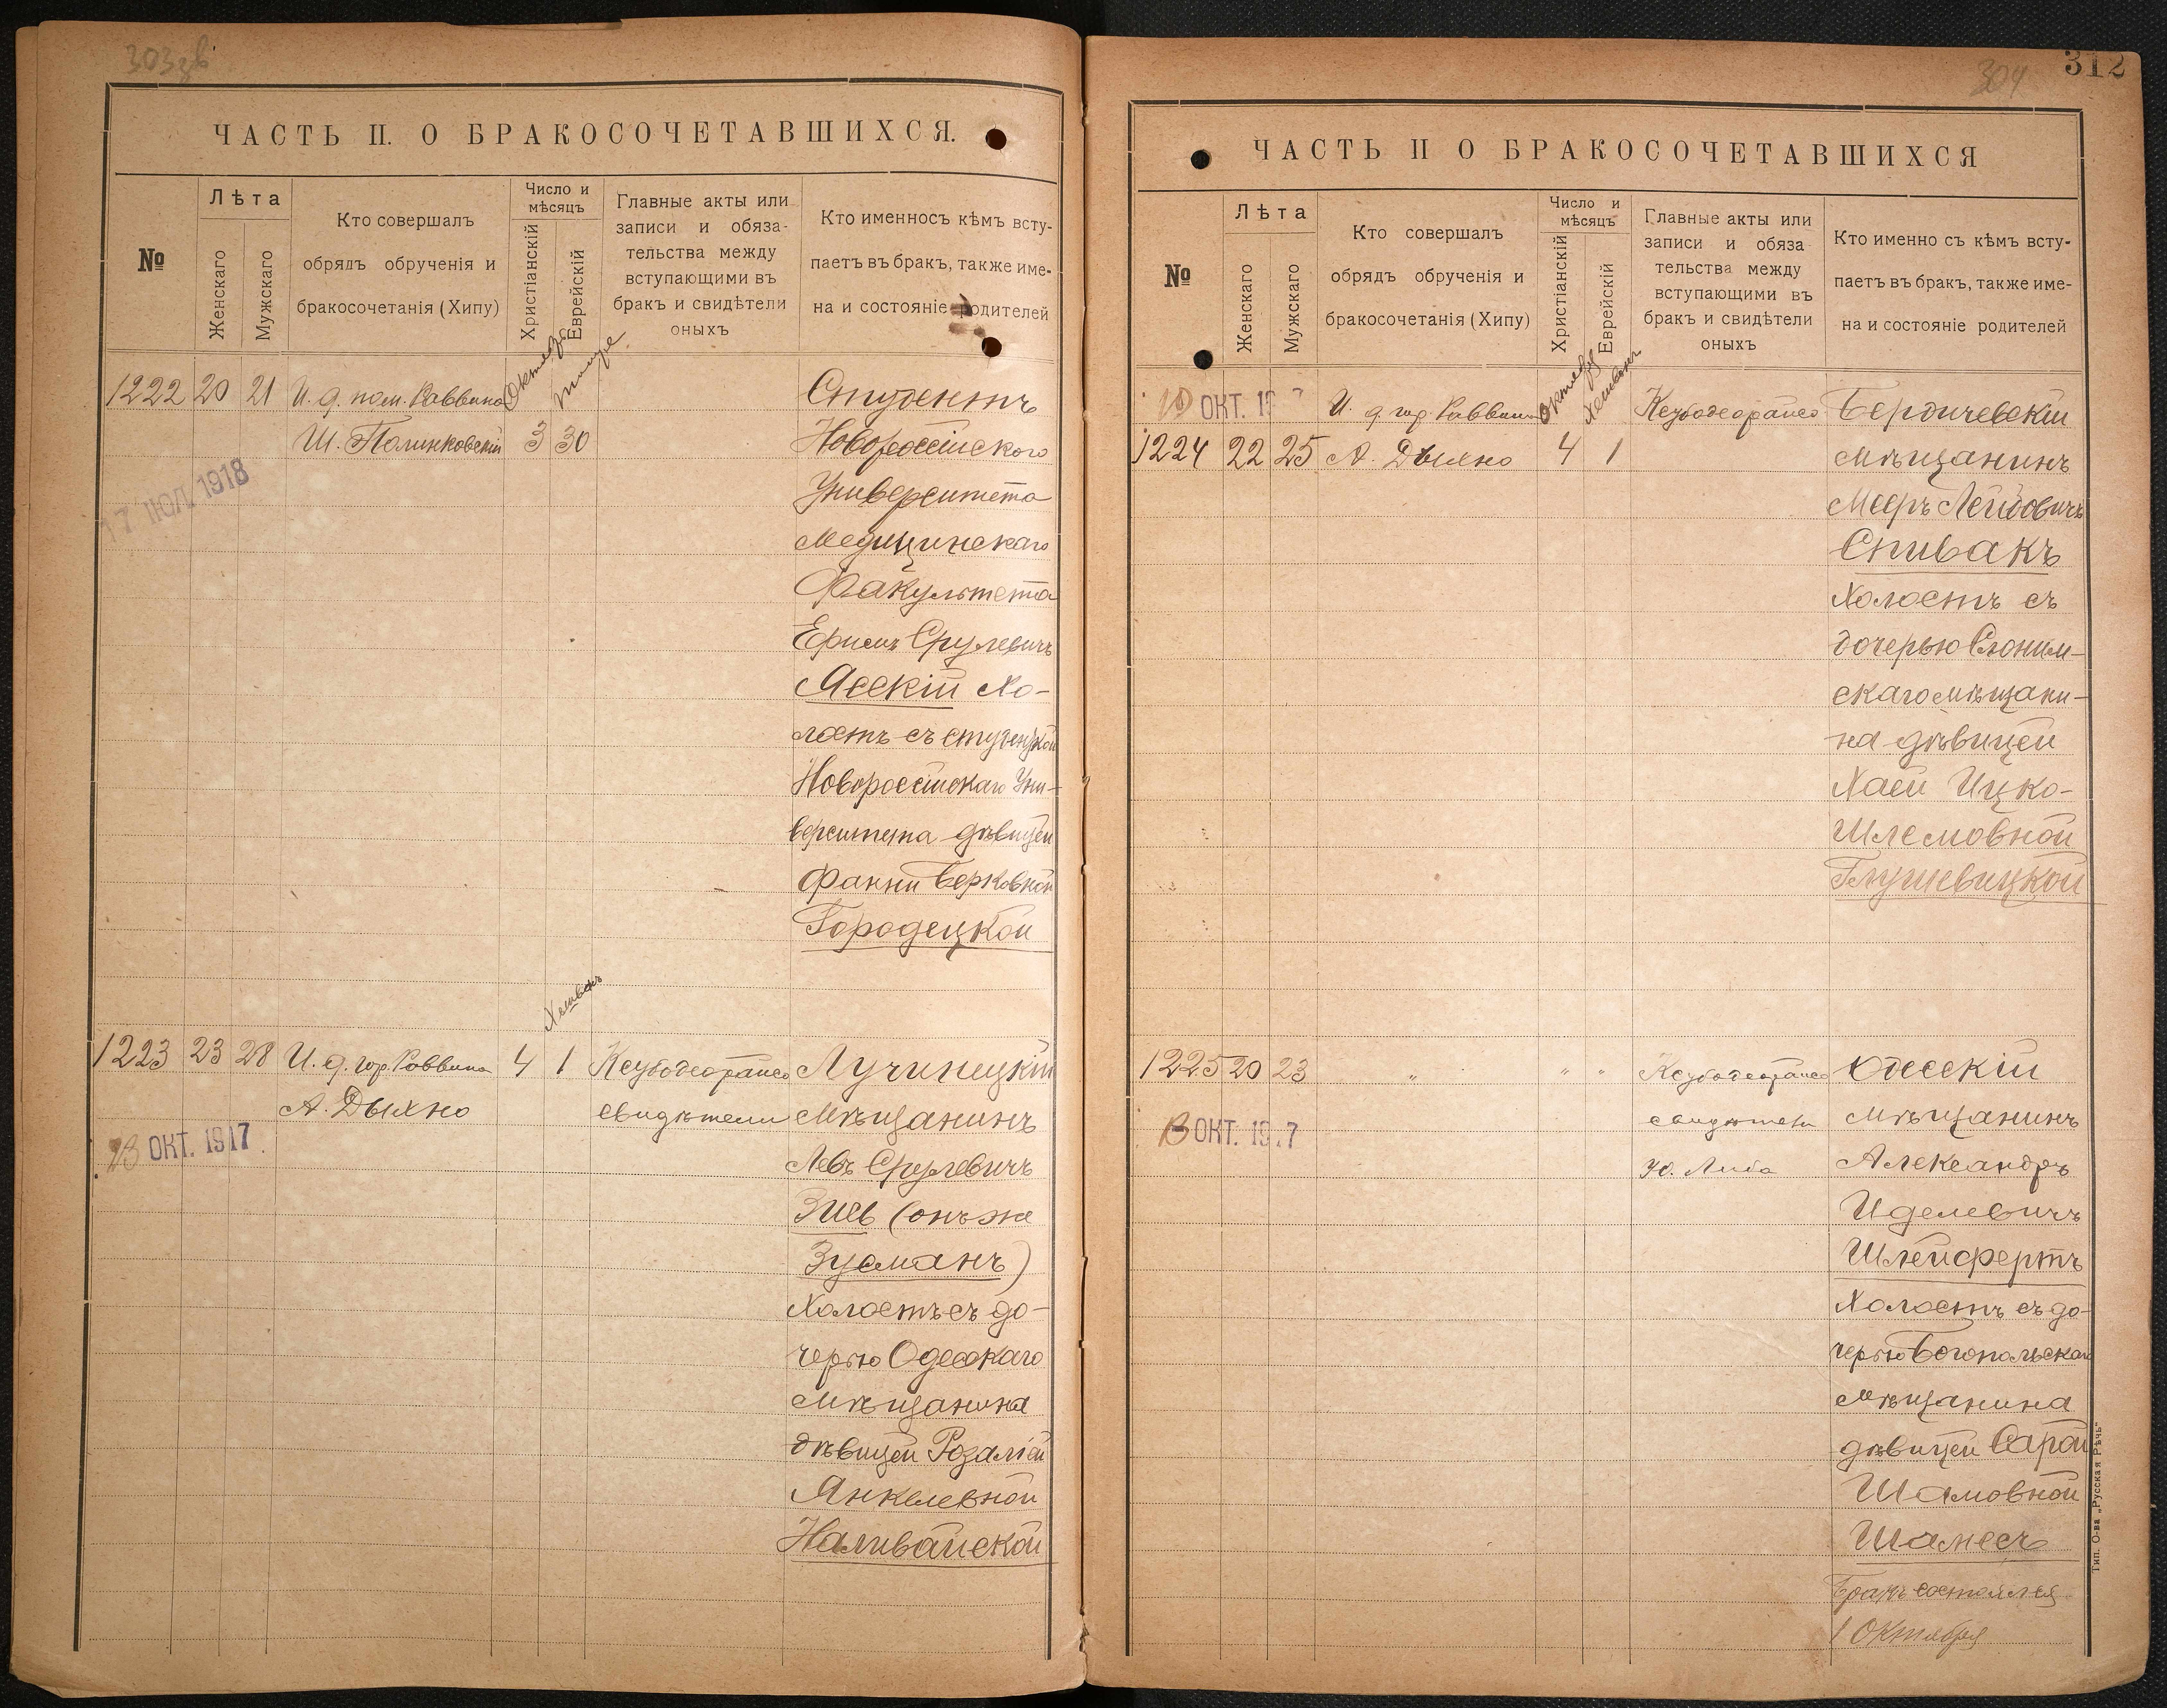 303зв
ЧАСТЬ II. О БРАКОСОЧЕТАВШИХСЯ.
№
Лѣта
Женскаго
Мужскаго
Кто совершалъ
обрядъ обрученія и
бракосочетанія (Хипу)
Число и
мѣсяцъ
Христіанскій
Еврейскій
Главные акты или
записи и обяза-
тельства между
вступающими въ
бракъ и свидѣтели
оныхъ
Кто именносъ кѣмъ всту-
паетъ въ бракъ, также име-
на и состояніе родителей
1222 20 21 И. д. пом. Раввина Октябрь Тишре Студентъ
Ш. Полинковскій 3 30 Новороссійскаго
17 ІЮЛ 1918
Университета
Медицинскаго
Факультета
Срулевичъ
Ясскій Хо-
лостъ съ студенткой
Новороссійскаго Уни-
верситета дѣвицей
Фанни Берковной
Городецкой
Хешванъ
1223 23 28 И. д. гор. Раввина 4 1 Лучинецкій
А. Дыхно свидѣтели Мѣщанинъ
23 ОКТ. 1917
Левъ Срулевичъ
Зисъ (онъ же
Зусманъ)
Холостъ съ до-
черью Одесскаго
Мѣщанина
дѣвицей Розаліей
Янкелевной
Наливайской
312
304
ЧАСТЬ II О БРАКОСОЧЕТАВШИХСЯ
№
Лѣта
Женскаго
Мужскаго
Кто совершалъ
обрядъ обрученія и
бракосочетанія (Хипу)
Число и
мѣсяцъ
Христіанскій
Еврейскій
Главные акты или
записи и обяза
тельства между
вступающими въ
бракъ и свидѣтели
оныхъ
Кто именно съ кѣмъ всту-
паетъ въ бракъ, также име-
на и состояніе родителей
10 ОКТ. 19 7 И. д. гор Раввина Октября Хешванъ Бердичевскій
1224 22 25 А. Дыхно 4 1 мѣщанинъ
Мееръ Лейбовичъ
Спивакъ
Холостъ съ
дочерью Слоним-
скаго мѣщани-
на дѣвицей
Хаей Ицко-
Шлемовной
Глушевицкой
1225 20 23 " " " Одесскій
свидѣтели мѣщанинъ
13 ОКТ. 19 7
Ю. Либа Александръ
Иделевичъ
Шлейфертъ
Холостъ съ до-
черью Богопольскаго
мѣщанина
дѣвицей Сарой
Шамовной
Шамесъ
Бракъ состоялся
1 Октября
Тип. О-ва „Русская Рѣчь"